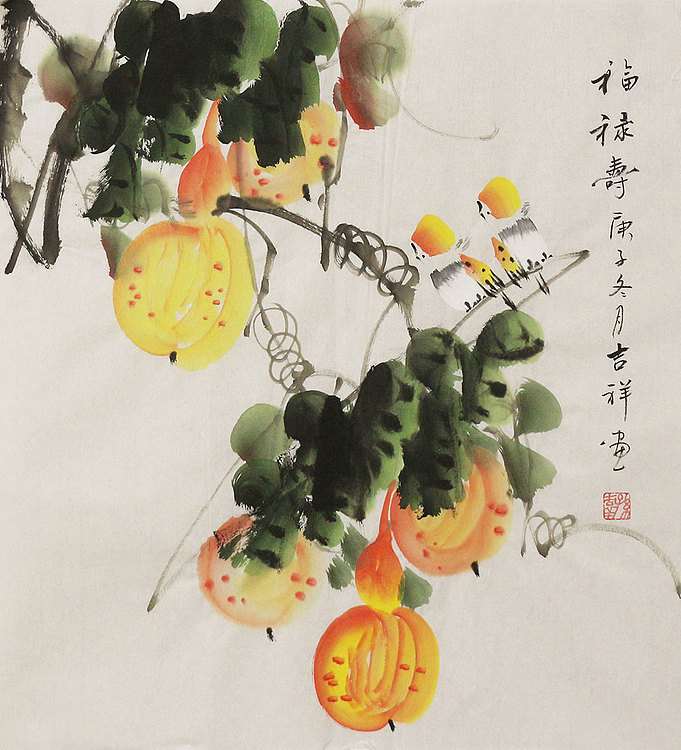 福禄壽庚子冬月吉祥画